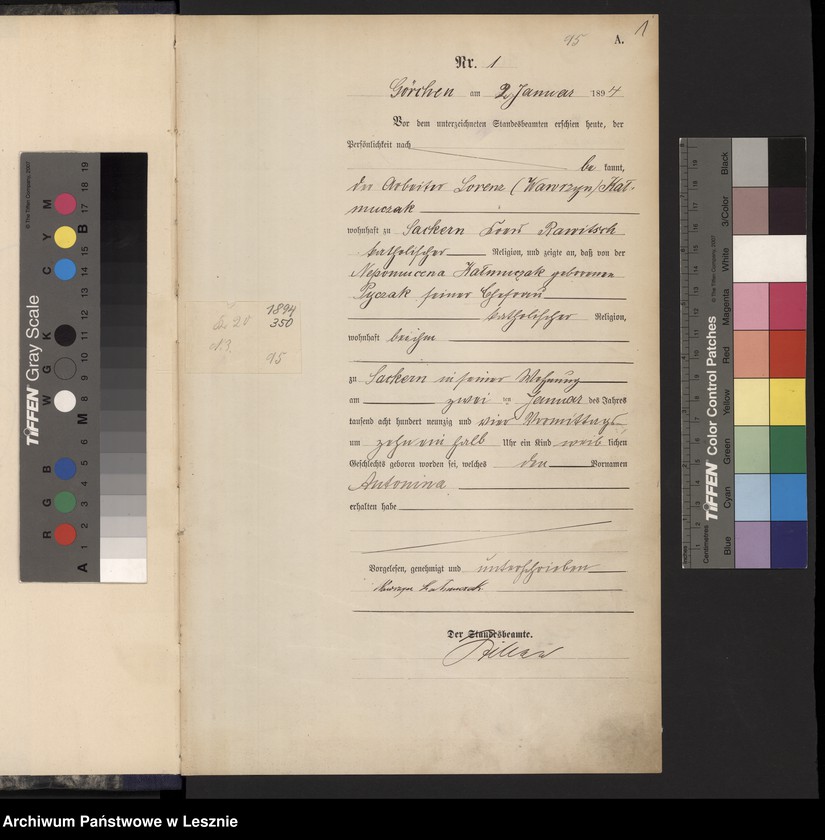 95 A. 1
Nr. 1
Görchen am 2 Januar 1894
Vor dem unterzeichneten Standesbeamten erschien heute, der
Persönlichkeit nach
be kannt,
der Arbeiter Lorenz (Wawrzyn) Kał-
muczak
wohnhaft zu Sackern Kreis Rawitsch
katholischer Religion, und zeigte an, daß von der
Nepomucena Kałmuczak geborenen
Pyczak seiner Ehefrau
katholischer Religion,
wohnhaft bei ihm
zu Sackern in seiner Wohnung
am zwei ten Januar des Jahres
tausend acht hundert neunzig und vier Vormittags
um zehn ein halb Uhr ein Kind weib lichen
Geschlechts geboren worden sei, welches den Vornamen
Antonina
erhalten habe
Vorgelesen, genehmigt und unterschrieben
Wawrzyn Kałmuczak
Der Standesbeamte.
1894
350
95
TIFFEN Gray Scale
© The Tiffen Company, 2007
R G B W G K C Y M
A 1 2 3 4 5 6 M 8 9 10 11 12 13 14 15 B 17 18 19
TIFFEN Color Control Patches
© The Tiffen Company, 2007
Centimetres
Inches
Blue Cyan Green Yellow Red Magenta White 3/Color Black
Archiwum Państwowe w Lesznie